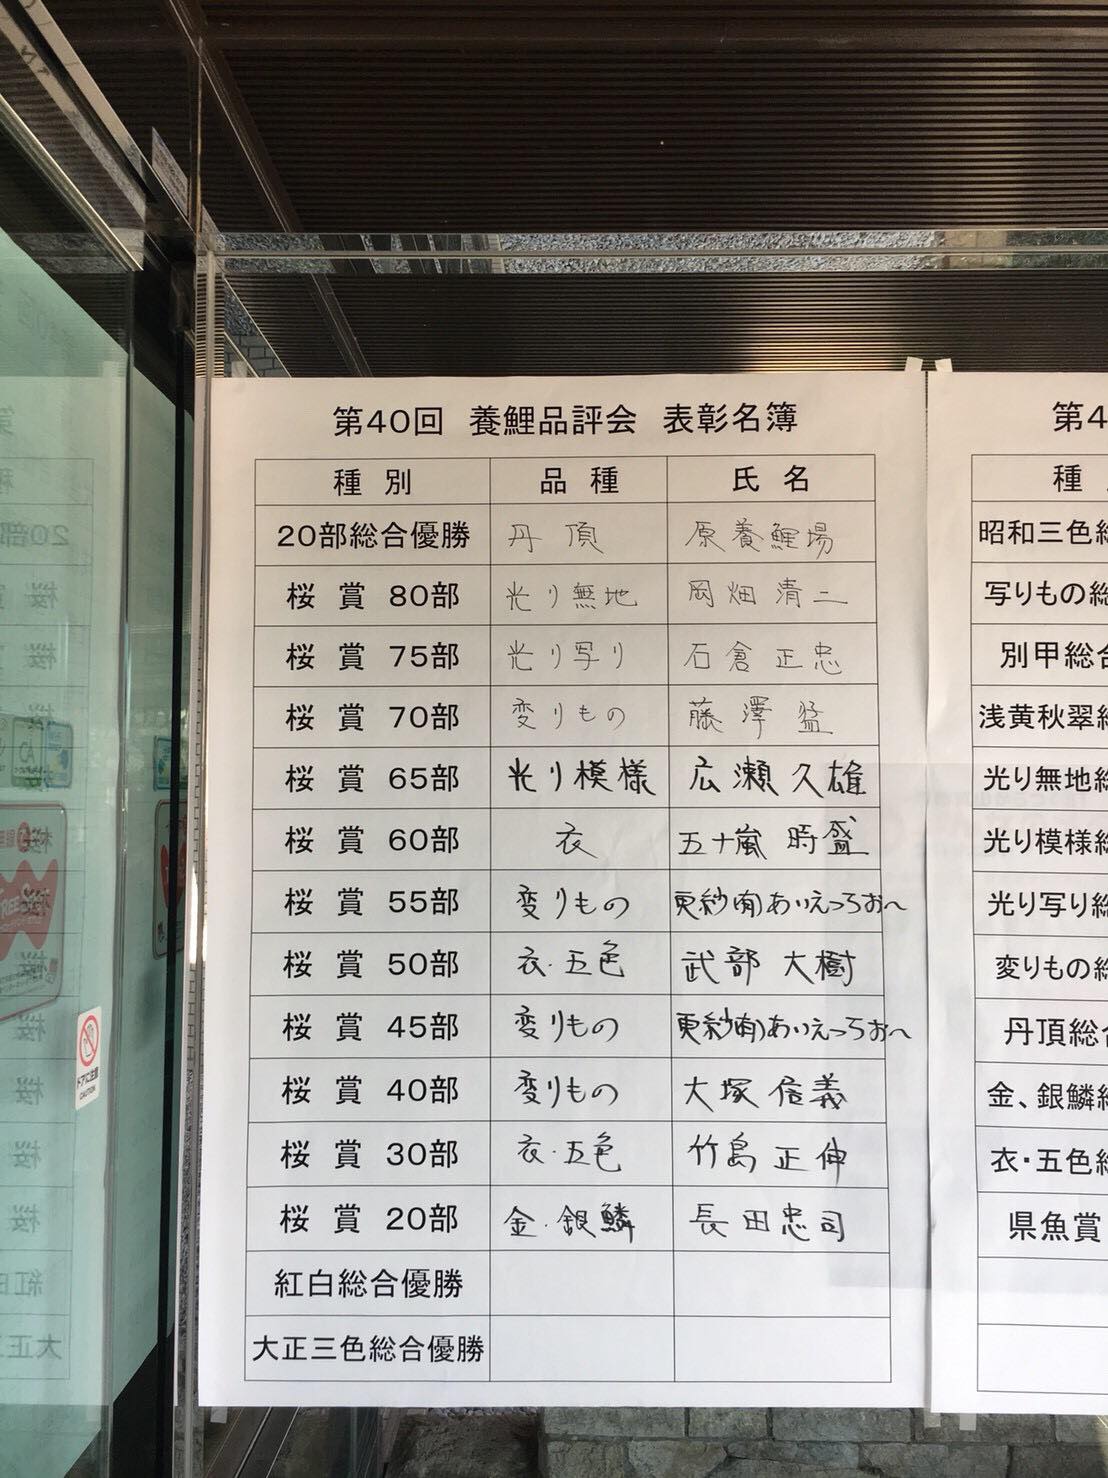 第40回 養鯉品評会 表彰名簿
種 別 品 種 氏 名
20部総合優勝 丹 頂 原養鯉場
桜 賞 80部 光り無地 岡畑 清二
桜 賞 75部 光り写り 石倉 正忠
桜 賞 70部 変りもの 藤澤 猛
桜 賞 65部 光り模様 広瀬 久雄
桜 賞 60部 衣 五十嵐 時盛
桜 賞 55部 変りもの 更紗(有)あいえっちおー
桜 賞 50部 衣・五色 武部 大樹
桜 賞 45部 変りもの 更紗(有)あいえっちおー
桜 賞 40部 変りもの 大塚 信義
桜 賞 30部 衣・五色 竹島 正伸
桜 賞 20部 金・銀鱗 長田忠司
紅白総合優勝
大正三色総合優勝
第4
種
昭和三色総
写りもの総
別甲総合
浅黄秋翠総
光り無地総
光り模様総
光り写り総
変りもの総
丹頂総合
金、銀鱗総
衣・五色総
県魚賞
ドアに注意
CAUTION